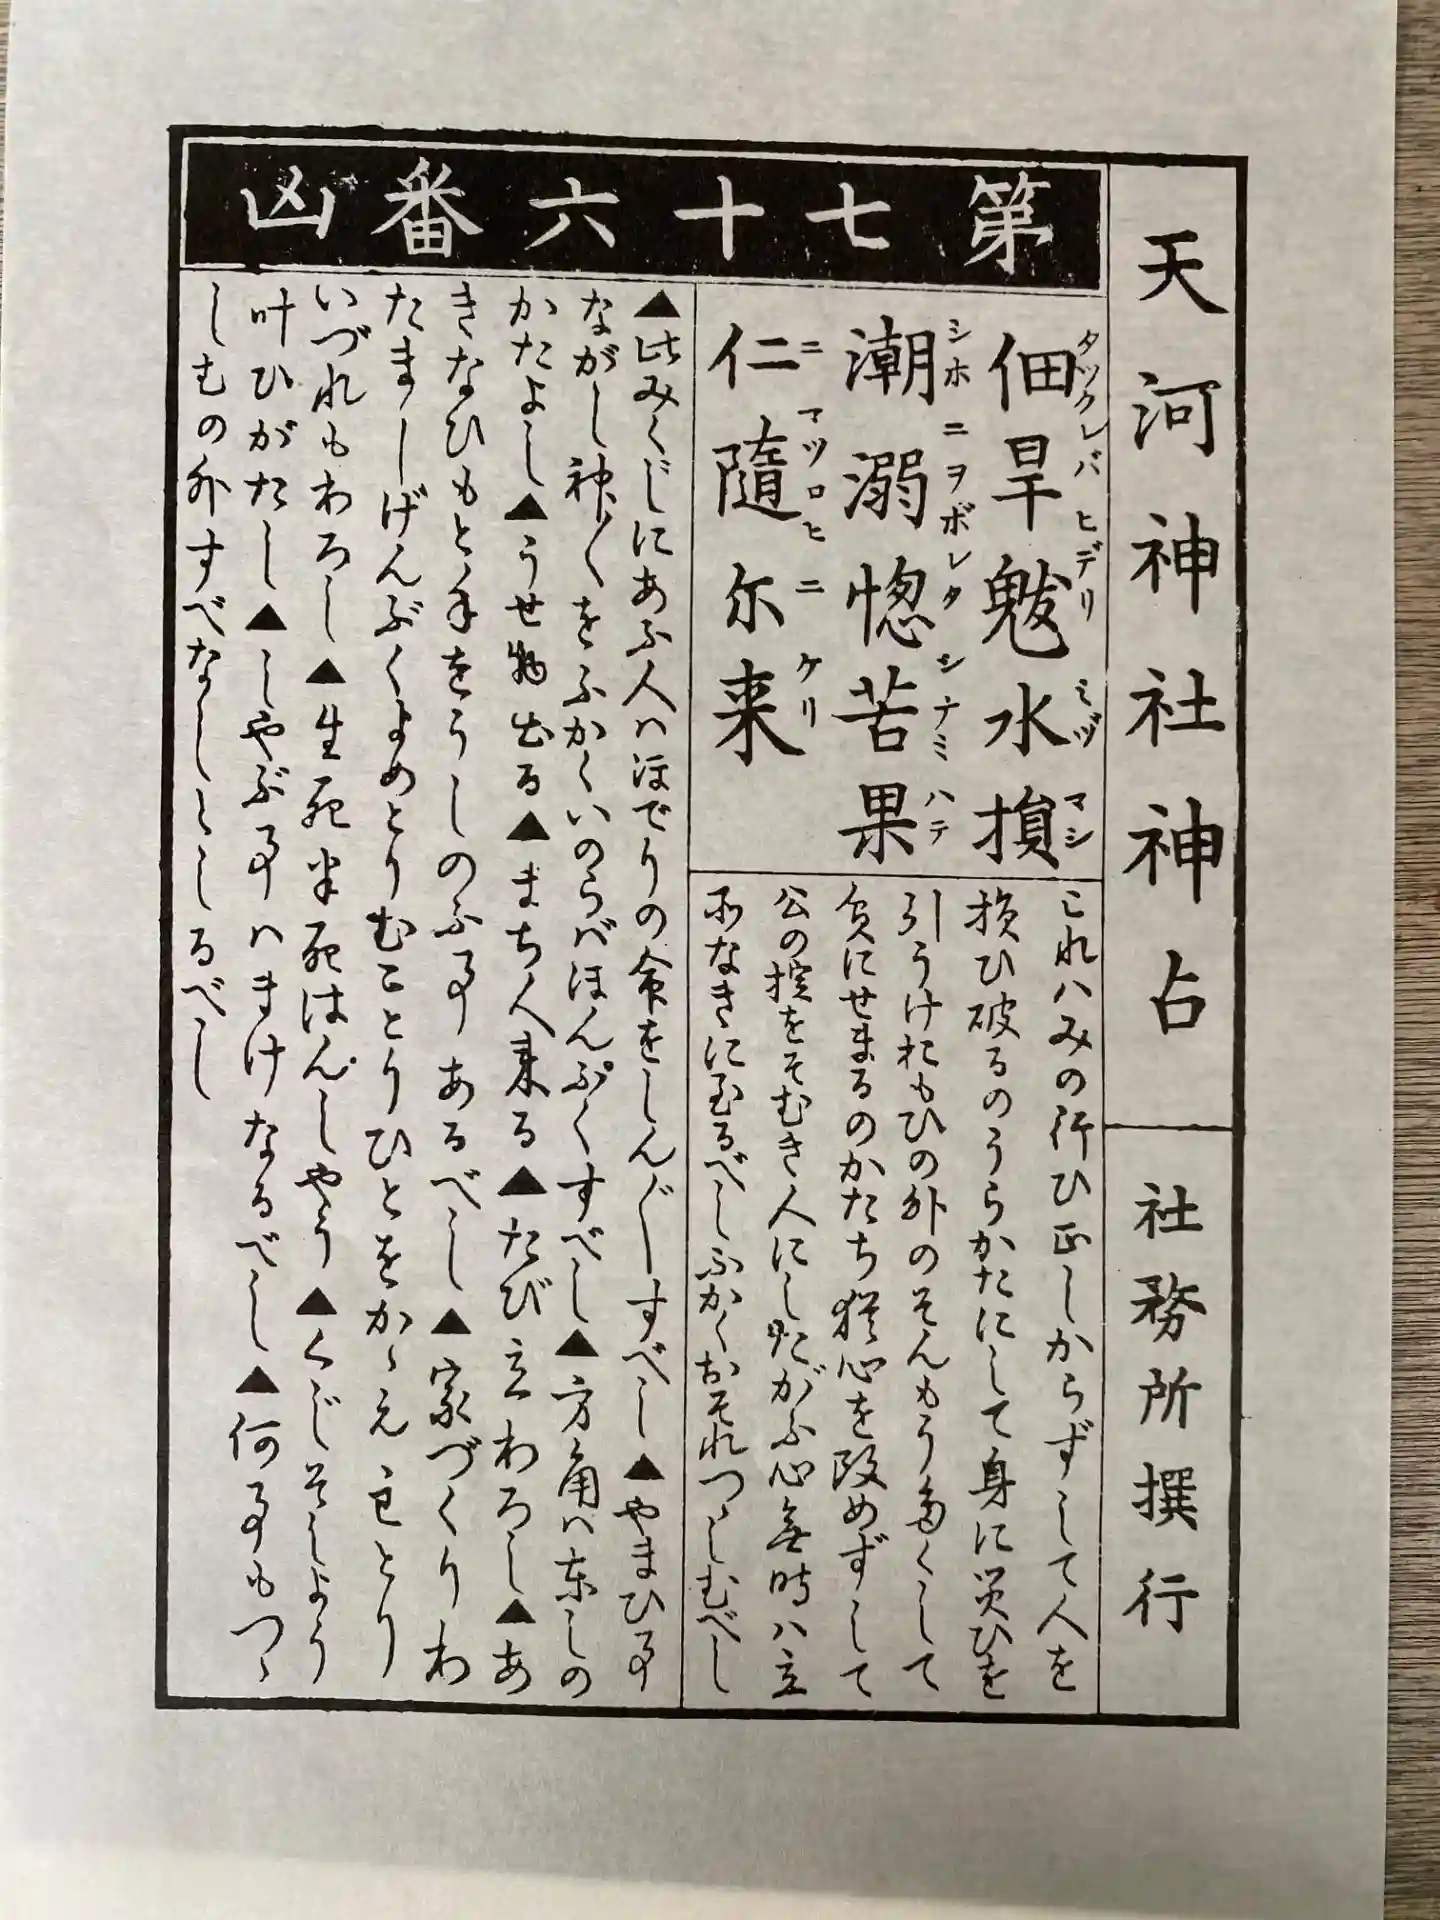 天河神社神占
社務所撰行
第七十六番凶
佃旱魃水損
タツクレバヒデリミヅマシ
潮溺惚苦果
シホニヲボレタシナミハテ
仁隨尓来
ニマツロヒニケリ
これハみの行ひ正しからずして人を
損ひ破るのうらかたにして身に災ひを
引うけおもひの外のそんもう多くして
貧にせまるのかたち猶心を改めずして
公の掟をそむき人にしたがふ心無時ハ立
所なきに至るべしふかくおそれつゝしむべし
▲此みくじにあふ人ハほでりの命をしん〴〵すべし▲やまひ事
ながし神〳〵をふかくいのらばほんぷくすべし▲方角ハ東しの
かたよし▲うせ物出る▲まち人来る▲たび立わろし▲あ
きなひもと手をうしのふ事あるべし▲家づくりわ
たましげんぶくよめとりむことりひとをかゝえ
いづれもわろし▲生死半死はんしやう▲くじそしよう
叶ひがたし▲しやぶ事ハまけなるべし▲何事もつゝ
しむの外すべなしとしるべし